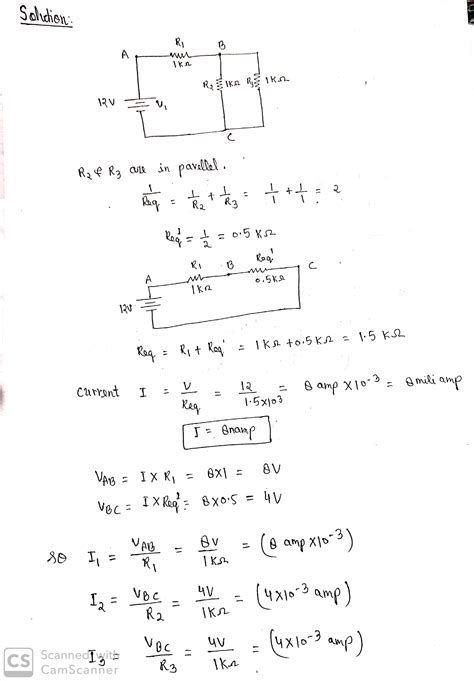 Solution:
R1
A
B
1KΩ
R2 1KΩ R3 1KΩ
12V
V1
C
R2 & R3 are in parallel.
1/Req = 1/R2 + 1/R3 = 1/1 + 1/1 = 2
Req' = 1/2 = 0.5 KΩ
A R1 B Req' C
1KΩ 0.5KΩ
12V
Req = R1 + Req' = 1KΩ + 0.5KΩ = 1.5 KΩ
Current I = V/Req = 12/1.5×10³ = 8 amp ×10⁻³ = 8 mili amp
I = 8mamp
VAB = I × R1 = 8×1 = 8V
VBC = I × Req' = 8×0.5 = 4V
so I1 = VAB/R1 = 8V/1KΩ = (8 amp ×10⁻³)
I2 = VBC/R2 = 4V/1KΩ = (4×10⁻³ amp)
I3 = VBC/R3 = 4V/1KΩ = (4×10⁻³ amp)
CS Scanned with
CamScanner